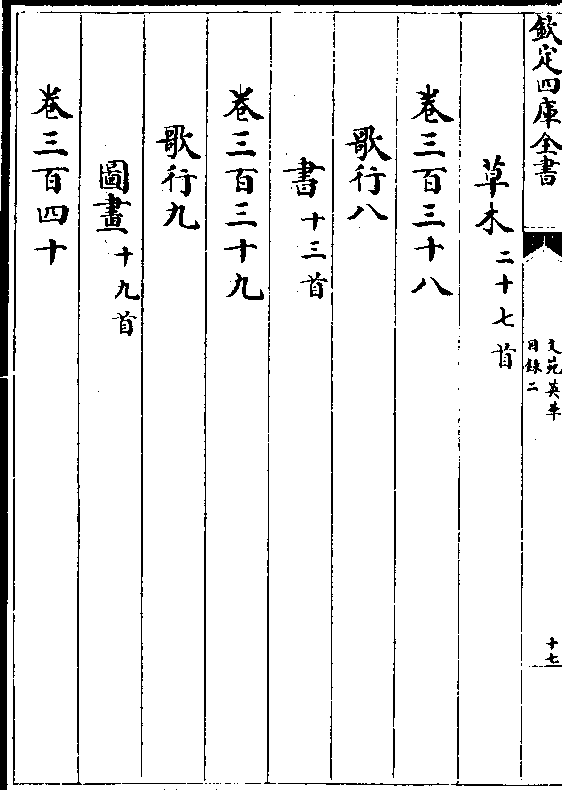 欽定四庫全書
文苑英華
目錄二
十七
草木二十七首
卷三百三十八
歌行八
書十三首
卷三百三十九
歌行九
圖畫十九首
卷三百四十